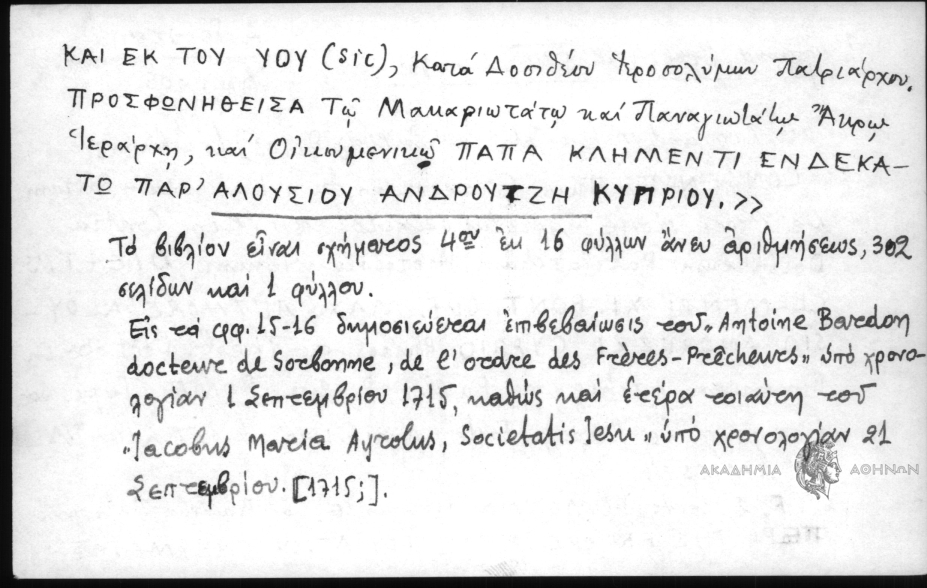 ΚΑΙ ΕΚ ΤΟΥ ΥΟΥ (sic), Κατά Δοσιθέου Ἱεροσολύμων Πατριάρχου.
ΠΡΟΣΦΩΝΗΘΕΙΣΑ Τῷ Μακαριωτάτῳ καί Παναγιωτάτῳ Ἄκρῳ
Ἱεράρχῃ, καί Οἰκουμενικῷ ΠΑΠΑ ΚΛΗΜΕΝΤΙ ΕΝΔΕΚΑ-
ΤΩ ΠΑΡ' ΑΛΟΥΣΙΟΥ ΑΝΔΡΟΥΤΖΗ ΚΥΠΡΙΟΥ.>>
Τό βιβλίον εἶναι σχήματος 4ου ἐκ 16 φύλλων ἄνευ ἀριθμήσεως, 302
σελίδων καί 1 φύλλου.
Εἰς τά φφ. 15-16 δημοσιεύεται ἐπιβεβαίωσις τοῦ „Antoine Baredon
docteur de Sorbonne, de l'ordre des Frères-Prêcheurs„ ὑπό χρονο-
λογίαν 1 Σεπτεμβρίου 1715, καθώς καί ἑτέρα τοιαύτη τοῦ
„Iacobus Maria Ayrolus, Societatis Iesu„ ὑπό χρονολογίαν 21
Σεπτεμβρίου. [1715;].
ΑΚΑΔΗΜΙΑ ΑΘΗΝΩΝ